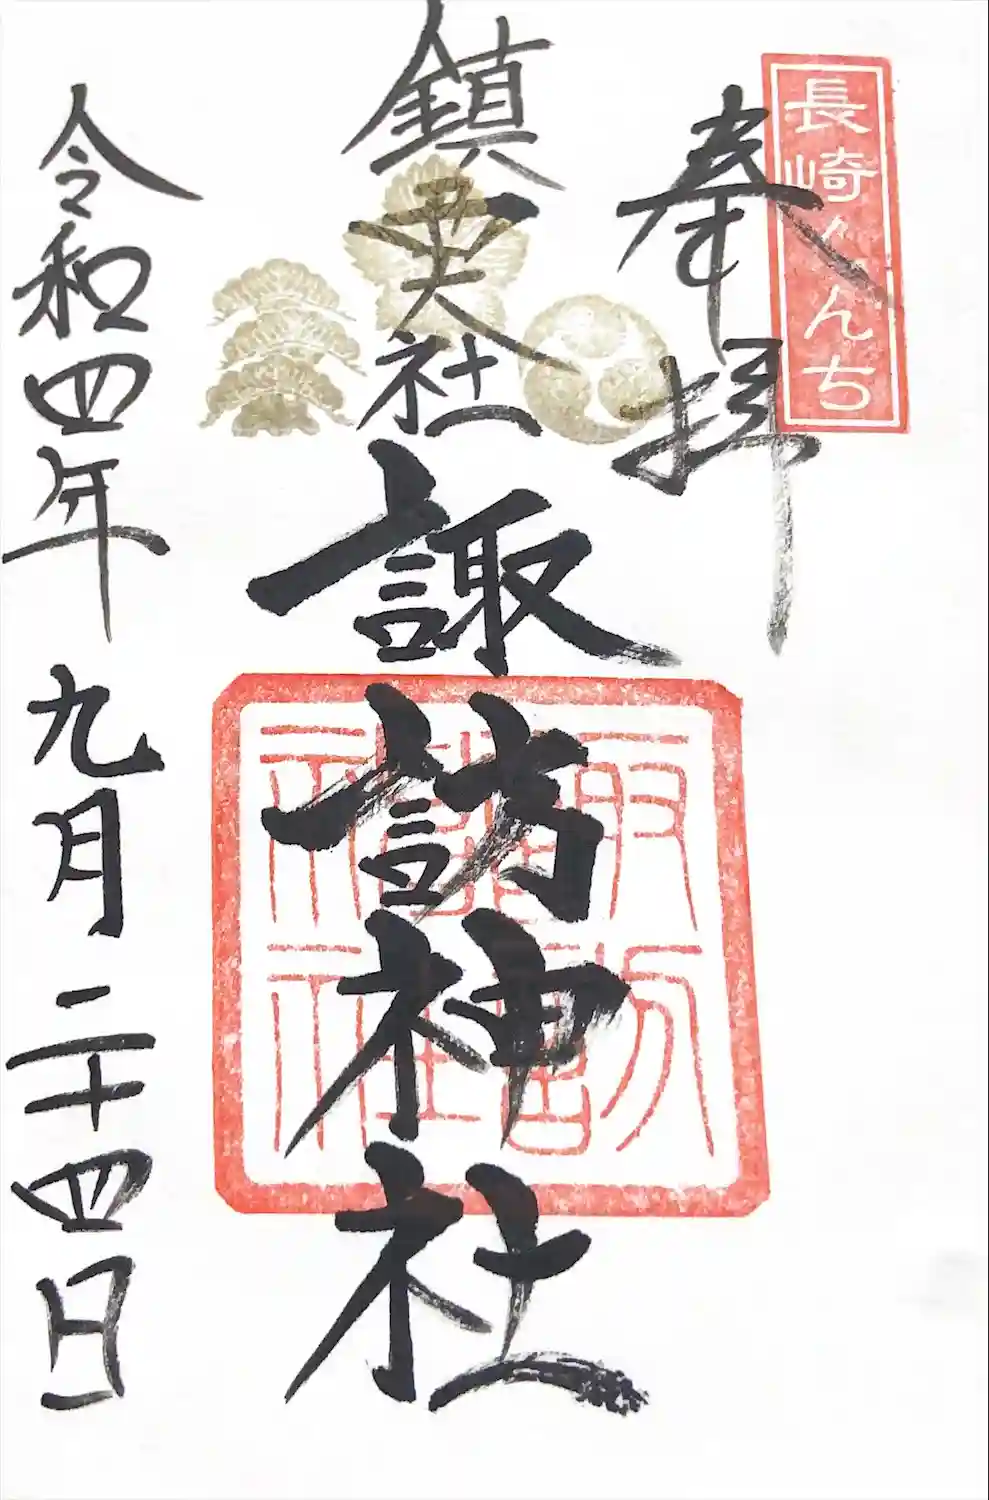 長崎くんち
奉拝
鎮西大社
諏訪神社
諏訪
神社
令和四年九月二十四日